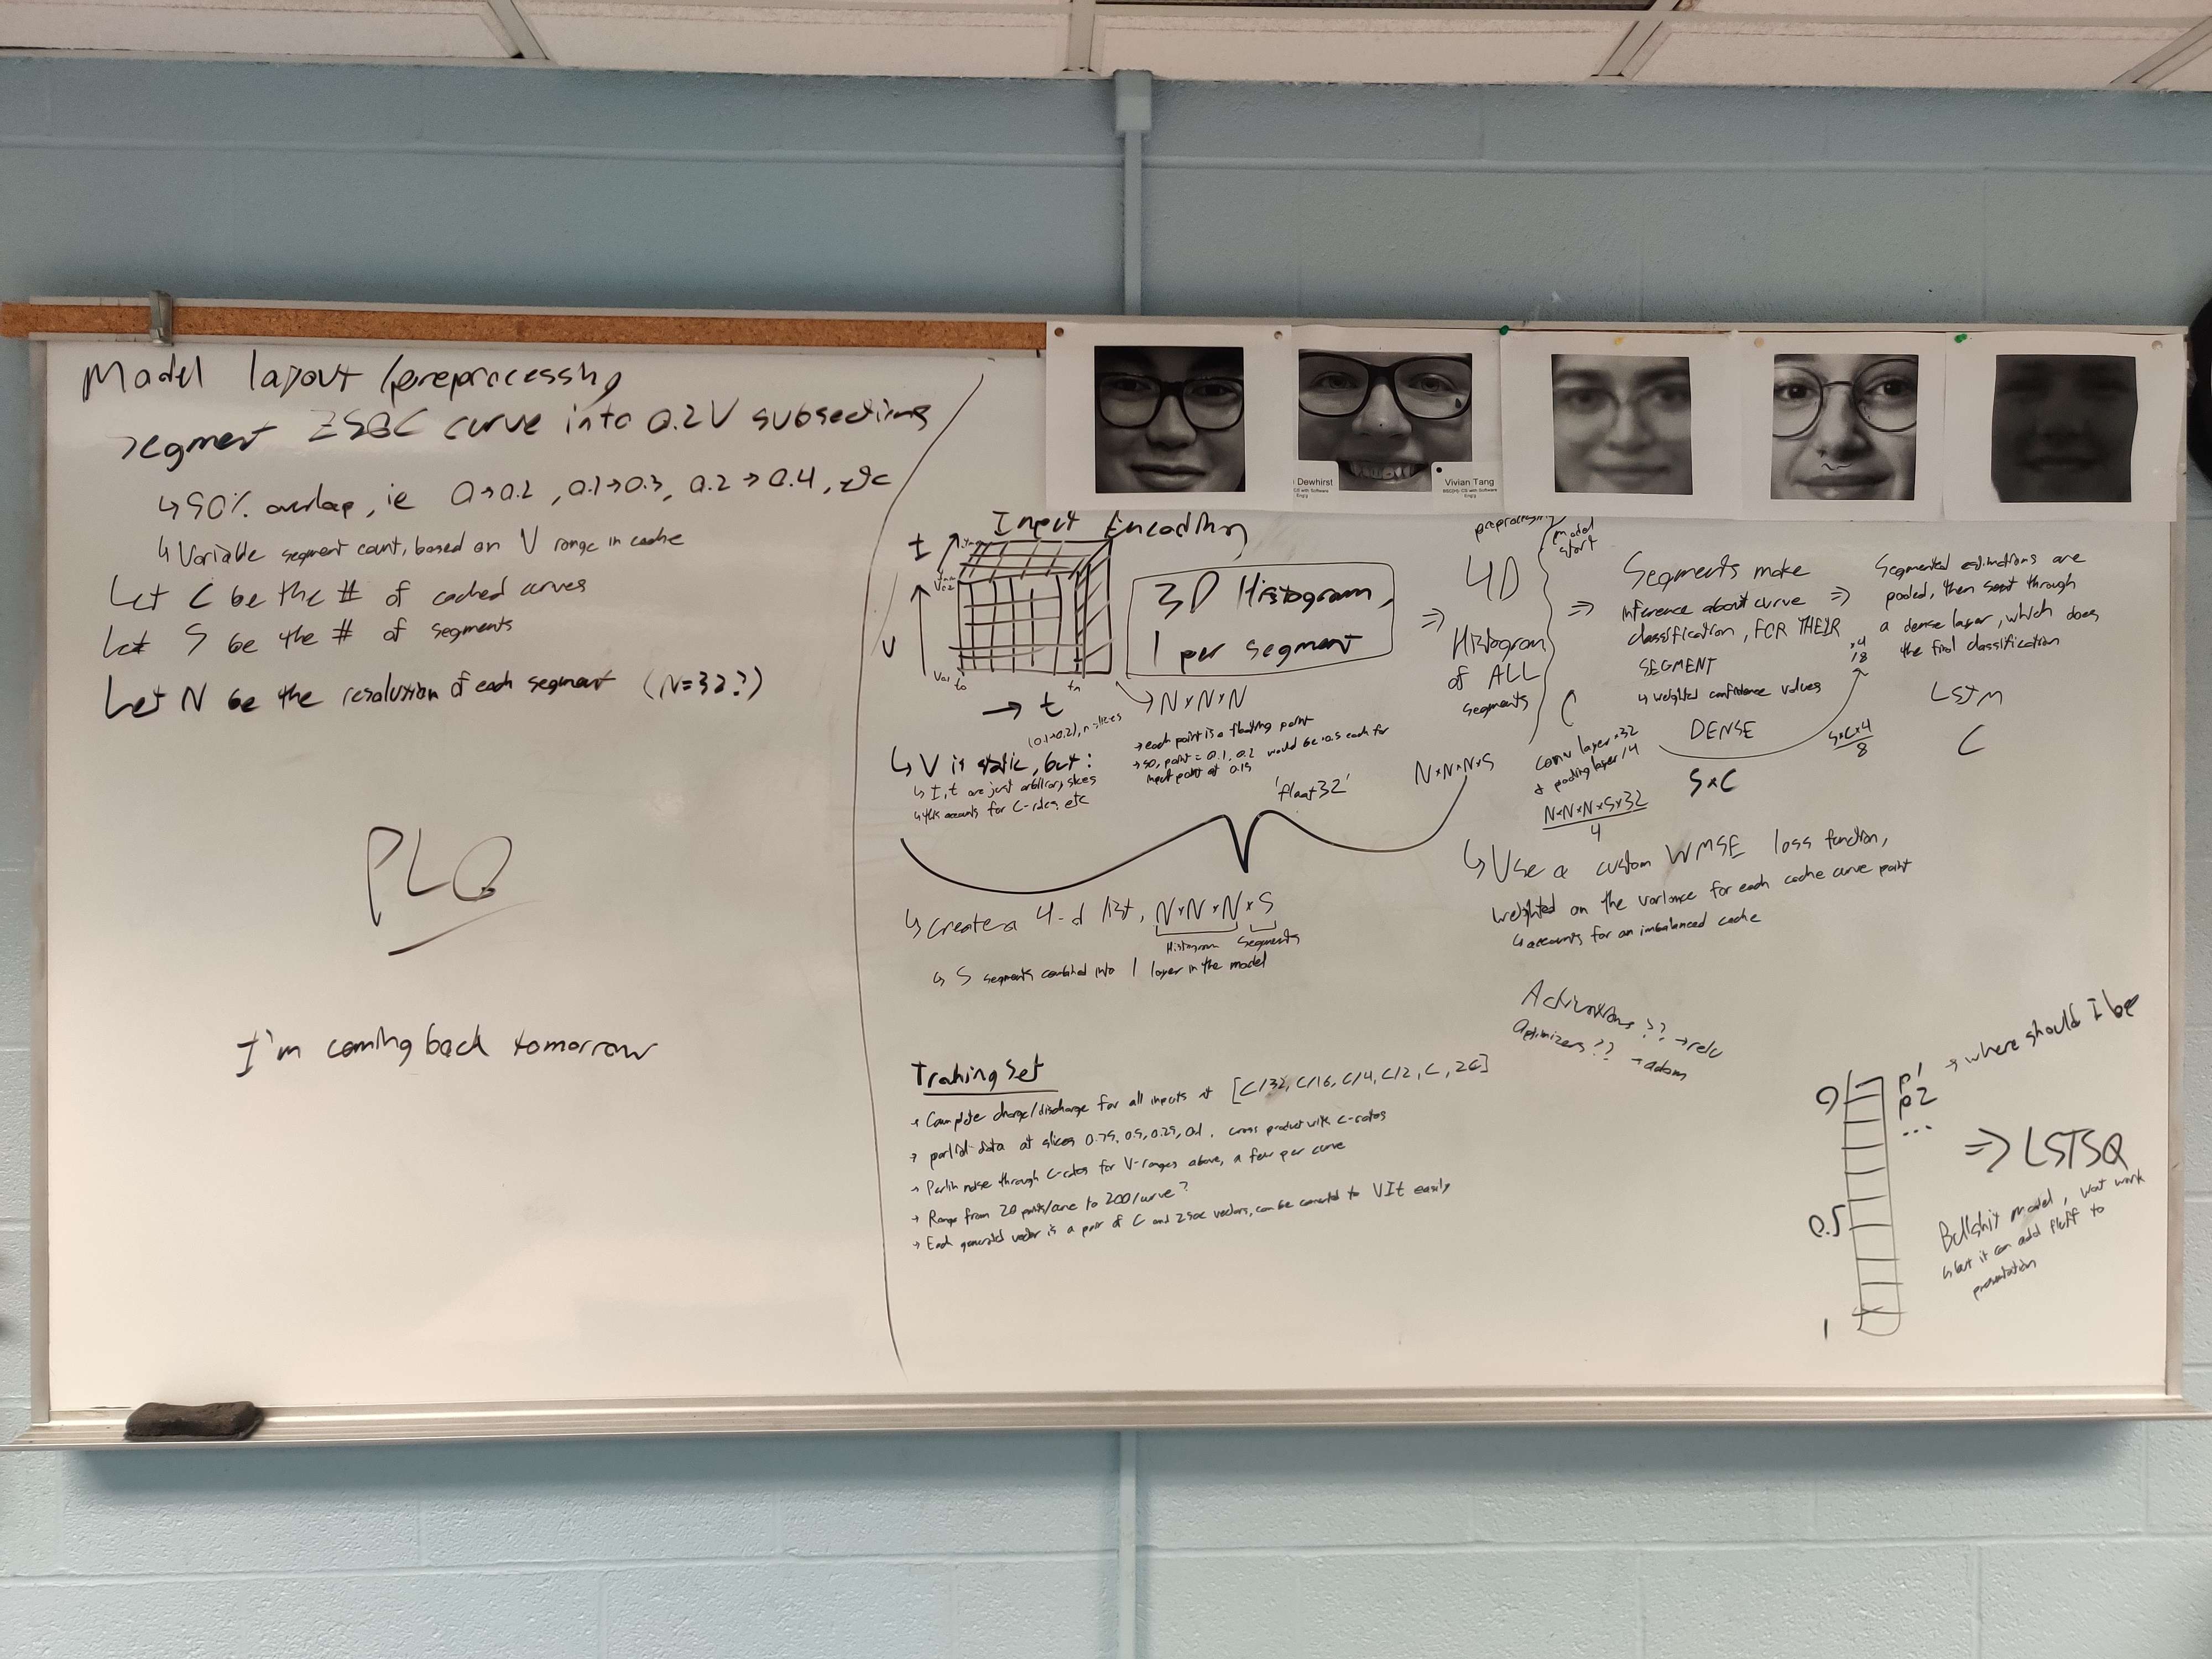 Model layout/preprocessing
Segment ZSOC curve into 0.2V subsections
↳ 50% overlap, ie 0→0.2, 0.1→0.3, 0.2→0.4, etc
↳ Variable segment count, based on V range in cache
Let C be the # of cached curves
Let S be the # of segments
Let N be the resolution of each segment (N=32?)
PLQ
I'm coming back tomorrow
Dewhirst
CS with Software
Eng'g
Vivian Tang
BSC(H), CS with Software
Eng'g
Input Encoding
I
V
→ t
3D Histogram,
1 per segment
→ N×N×N
(0.1→0.2), n slices
→ each point is a floating point
→ so, point = 0.1, 0.2 would be 0.5 each for
input point at 0.15
↳ V is static, but:
↳ I, t are just arbitrary slices
↳ this accounts for C-rates, etc
'float32'
↳ Create a 4-d list, N×N×N×S
Histogram Segments
↳ S segments combined into 1 layer in the model
preprocessing
model
start
⇒ 4D
Histogram
of ALL
segments
N×N×N×S
⇒ Segments make
inference about curve
classification, FOR THEIR
SEGMENT
↳ weighted confidence values
conv layer ×32
+ pooling layer /4
N×N×N×S×32
4
DENSE
S×C
×4
/8
S×C×4
8
⇒ Segmented estimations are
pooled, then sent through
a dense layer, which does
the final classification
LSTM
C
↳ Use a custom WMSE loss function,
weighted on the variance for each cache curve point
↳ accounts for an imbalanced cache
Activations?? → relu
Optimizers?? → adam
Training Set
→ Complete charge/discharge for all inputs at [C/32, C/16, C/4, C/2, C, 2C]
→ partial data at slices 0.75, 0.5, 0.25, 0.1, cross product with c-rates
→ Perlin noise through C-rates for V-ranges above, a few per curve
→ Range from 20 points/curve to 200/curve?
→ Each generated vector is a pair of C and ZSOC vectors, can be converted to VIt easily
0
0.5
1
p1 → where should I be
p2
...
⇒ LSTSQ
Bullshit model, wont work
↳ but it can add fluff to
presentation